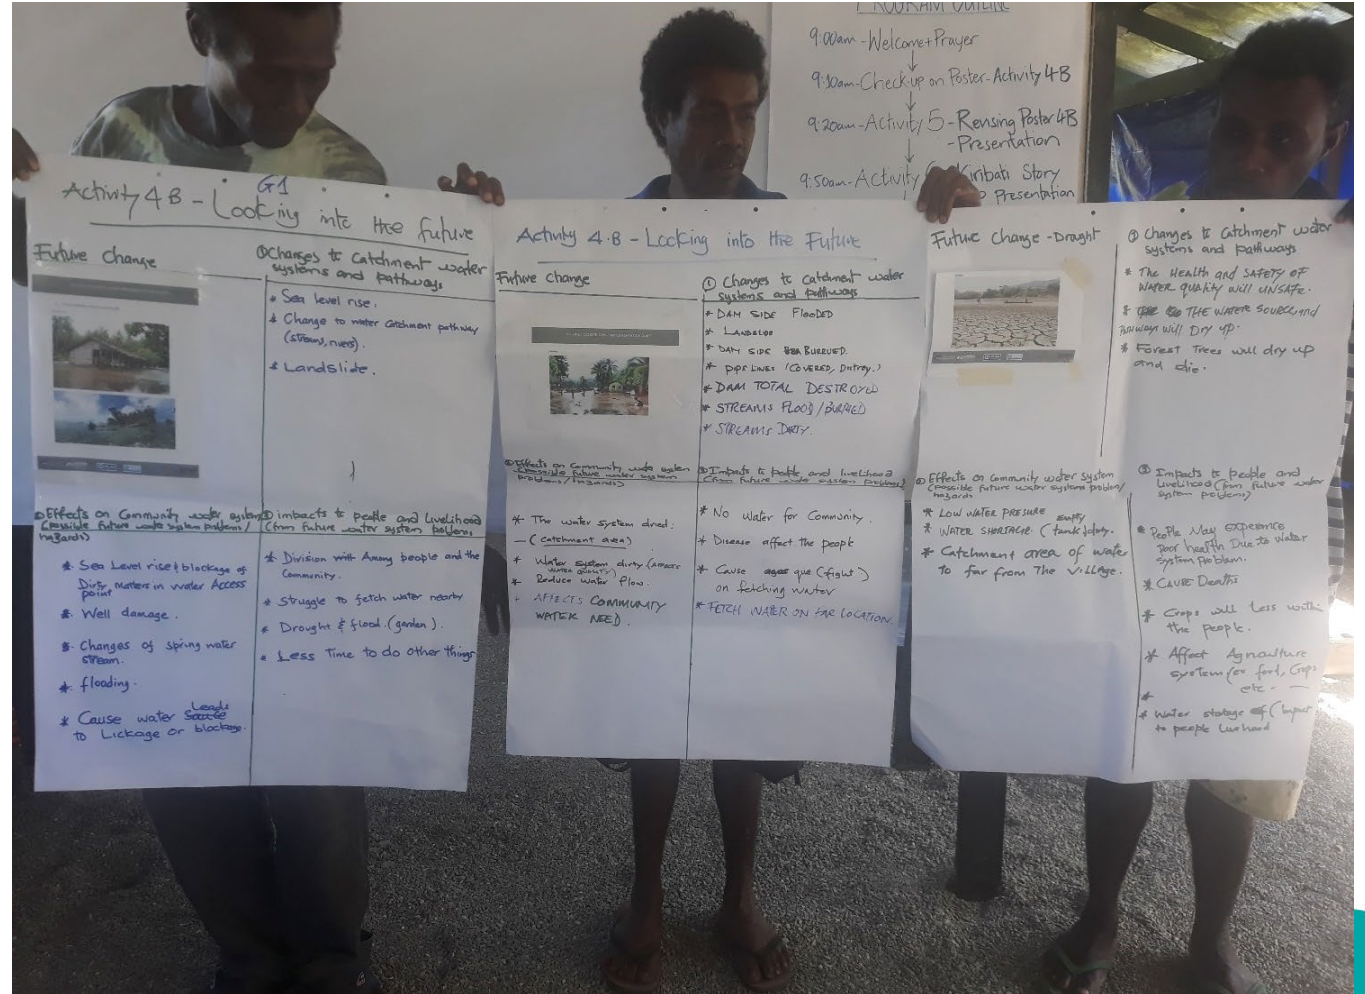 PROGRAM OUTLINE
9:00am - Welcome + Prayer
9:10am - Check up on Poster - Activity 4B
9:20am - Activity 5 - Revising Poster 4B
- Presentation
9:50am - Activity Kiribati Story
Presentation
G1
Activity 4B - Looking into the future
Future change
① Changes to Catchment water
systems and pathways
* Sea level rise.
* Change to water Catchment pathway
(streams, rivers).
* Landslide.
Effects on Community water system
(possible future water system problems/
hazards)
* Sea Level rise & blockage of
Dirty Matters in Water Access
point
* Well damage.
* Changes of spring water
stream.
* flooding.
Leads
* Cause water Source
to Lickage or blockage.
impacts to people and Livelihood
(from future water system problems)
* Division with Among people and the
Community.
* Struggle to fetch water nearby
* Drought & flood. (garden).
* Less Time to do other things
Activity 4.B - Looking into the Future
Future change
① Changes to Catchment water
systems and pathways
* DAM SIDE FLOODED
* DAM SIDE BURRUED.
* PIPE LINES (COVERED,
* DAM TOTAL DESTROYED
* STREAMS FLOOD/BURRIED
* STREAMS DIRTY.
Effects on Community water system
(possible future water system
problems/hazards)
* The water system dried.
- (Catchment area)
* Water system dirty (AFFECTS
WATER QUALITY)
* Reduce water flow.
* AFFECTS COMMUNITY
WATER NEED.
③ Impacts to people and Livelihood
(from future water system problems)
* No water for Community.
* Disease affect the people
* Cause que (fight)
on fetching water
* FETCH WATER ON FAR LOCATION.
Future Change - Draught
① Changes to Catchment water
systems and pathways
* THE HEALTH and SAFETY OF
WATER quality will UNSAFE.
* THE WATER SOURCE and
PATHWAYS will Dry up.
* Forest Trees will dry up
and die.
Effects on Community water system
(possible future water system problem/
hazards
* LOW WATER PRESURE
empty
* WATER SHORTAGE (tank)
* Catchment area of water
to far from The VILLAGE.
③ Impacts to people and
Livelihood (from future water
system problems)
* People May experence
Poor health Due to Water
system Problem.
* CAUSE Deaths
* Crops will Less within
the people.
* Affect Agriculture
system (ex food, Crops
etc.
*
* Water
to people